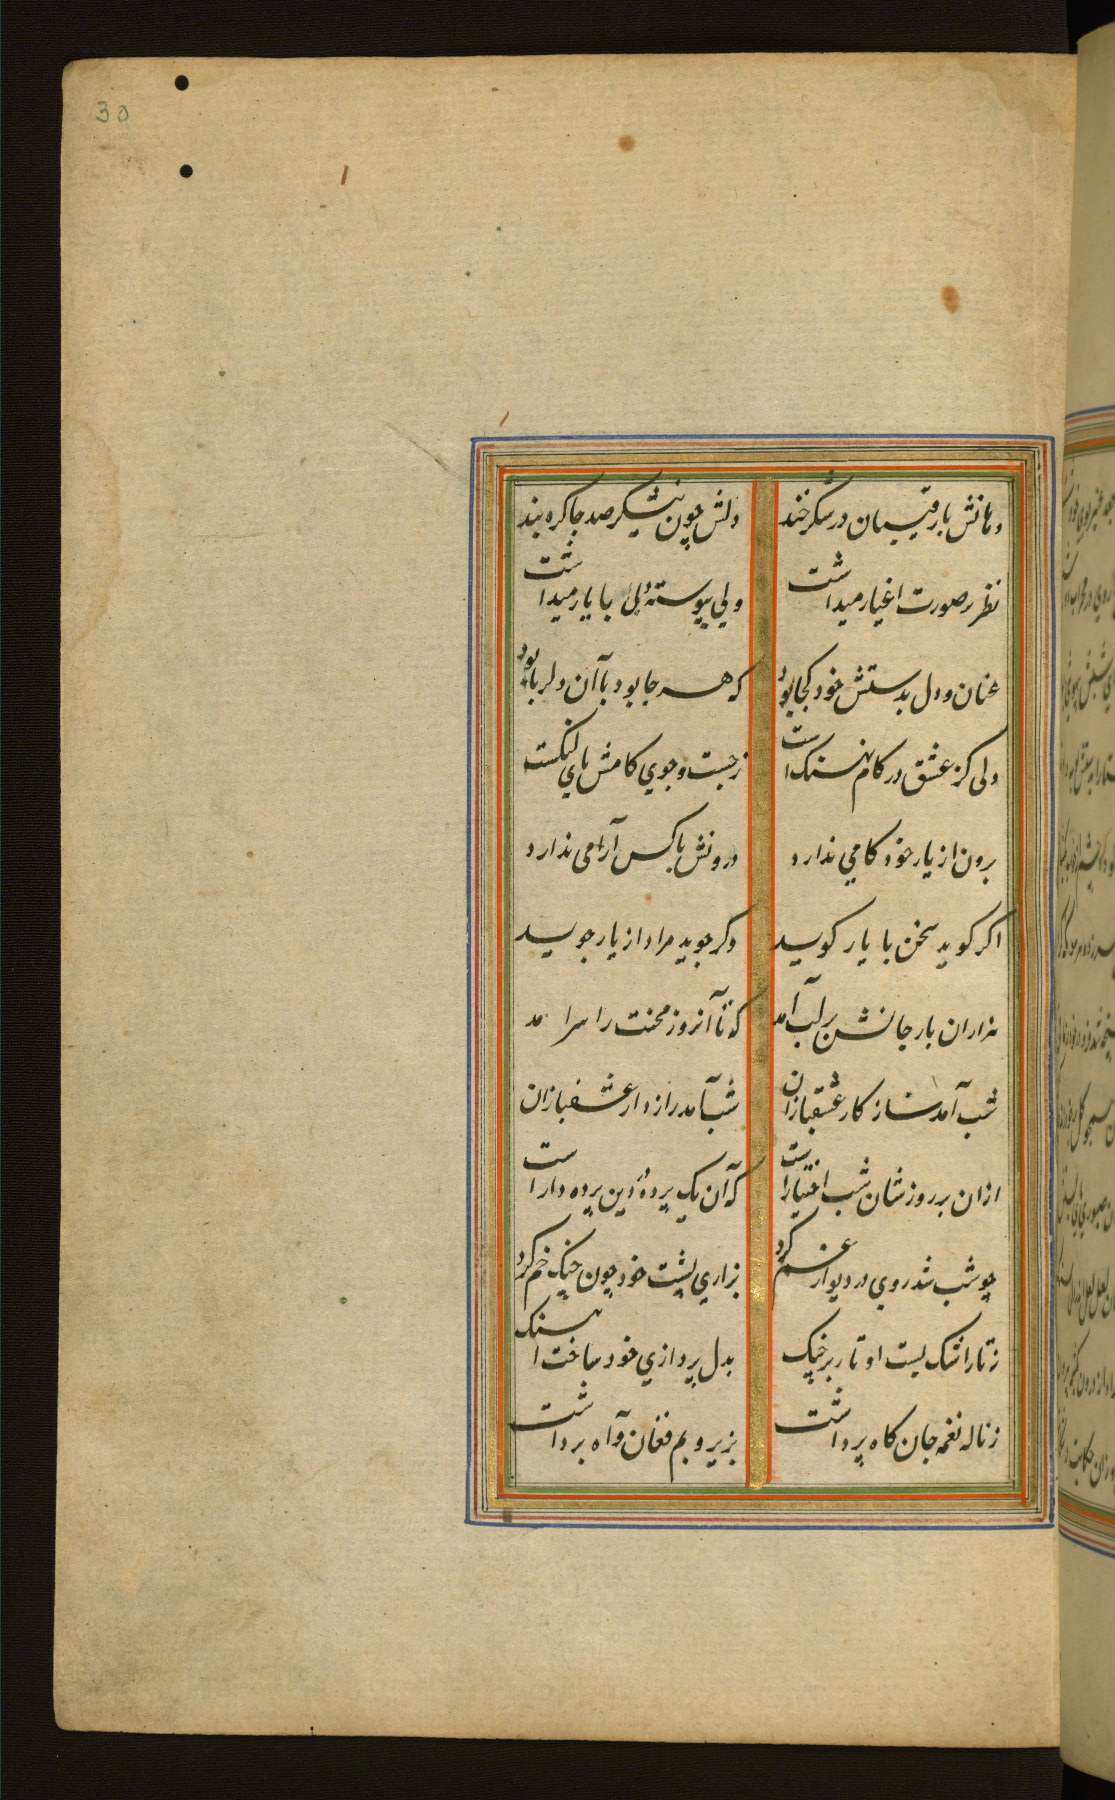 30
دهانش با رقیبان در شکرخند
دلش چون نیشکر صد جا کره بند
نظر بر صورت اغیار میداشت
ولی پیوسته دل با یار میداشت
عنان دل بدستش خود کجا بود
که هر جا بود با آن دلربا بود
دلی کز عشق در کام نهنک است
ز جست و جوی کامش پای لنکست
برون از یار خود کامی ندارد
درونش با کس آرامی ندارد
اکر کوید سخن با یار کوید
وکر جوید مراد از یار جوید
هزاران بار جانش بر لب آمد
که تا آنروز محنت را سر آمد
شب آمد ساز کار عشقبازان
شب آمد رازدار عشقبازان
از ان بر روز شان شب اختیار است
که آن یک پرده در وین پرده دار است
چو شب شد روی در دیوار غم کرد
بزاری پشت خود چون چنک خم کرد
ز تار اشک بست اوتار بر چنک
بدل پردازی خود ساخت آهنک
ز ناله نغمه جان کاه برداشت
بزیر و بم فغان و آه برداشت